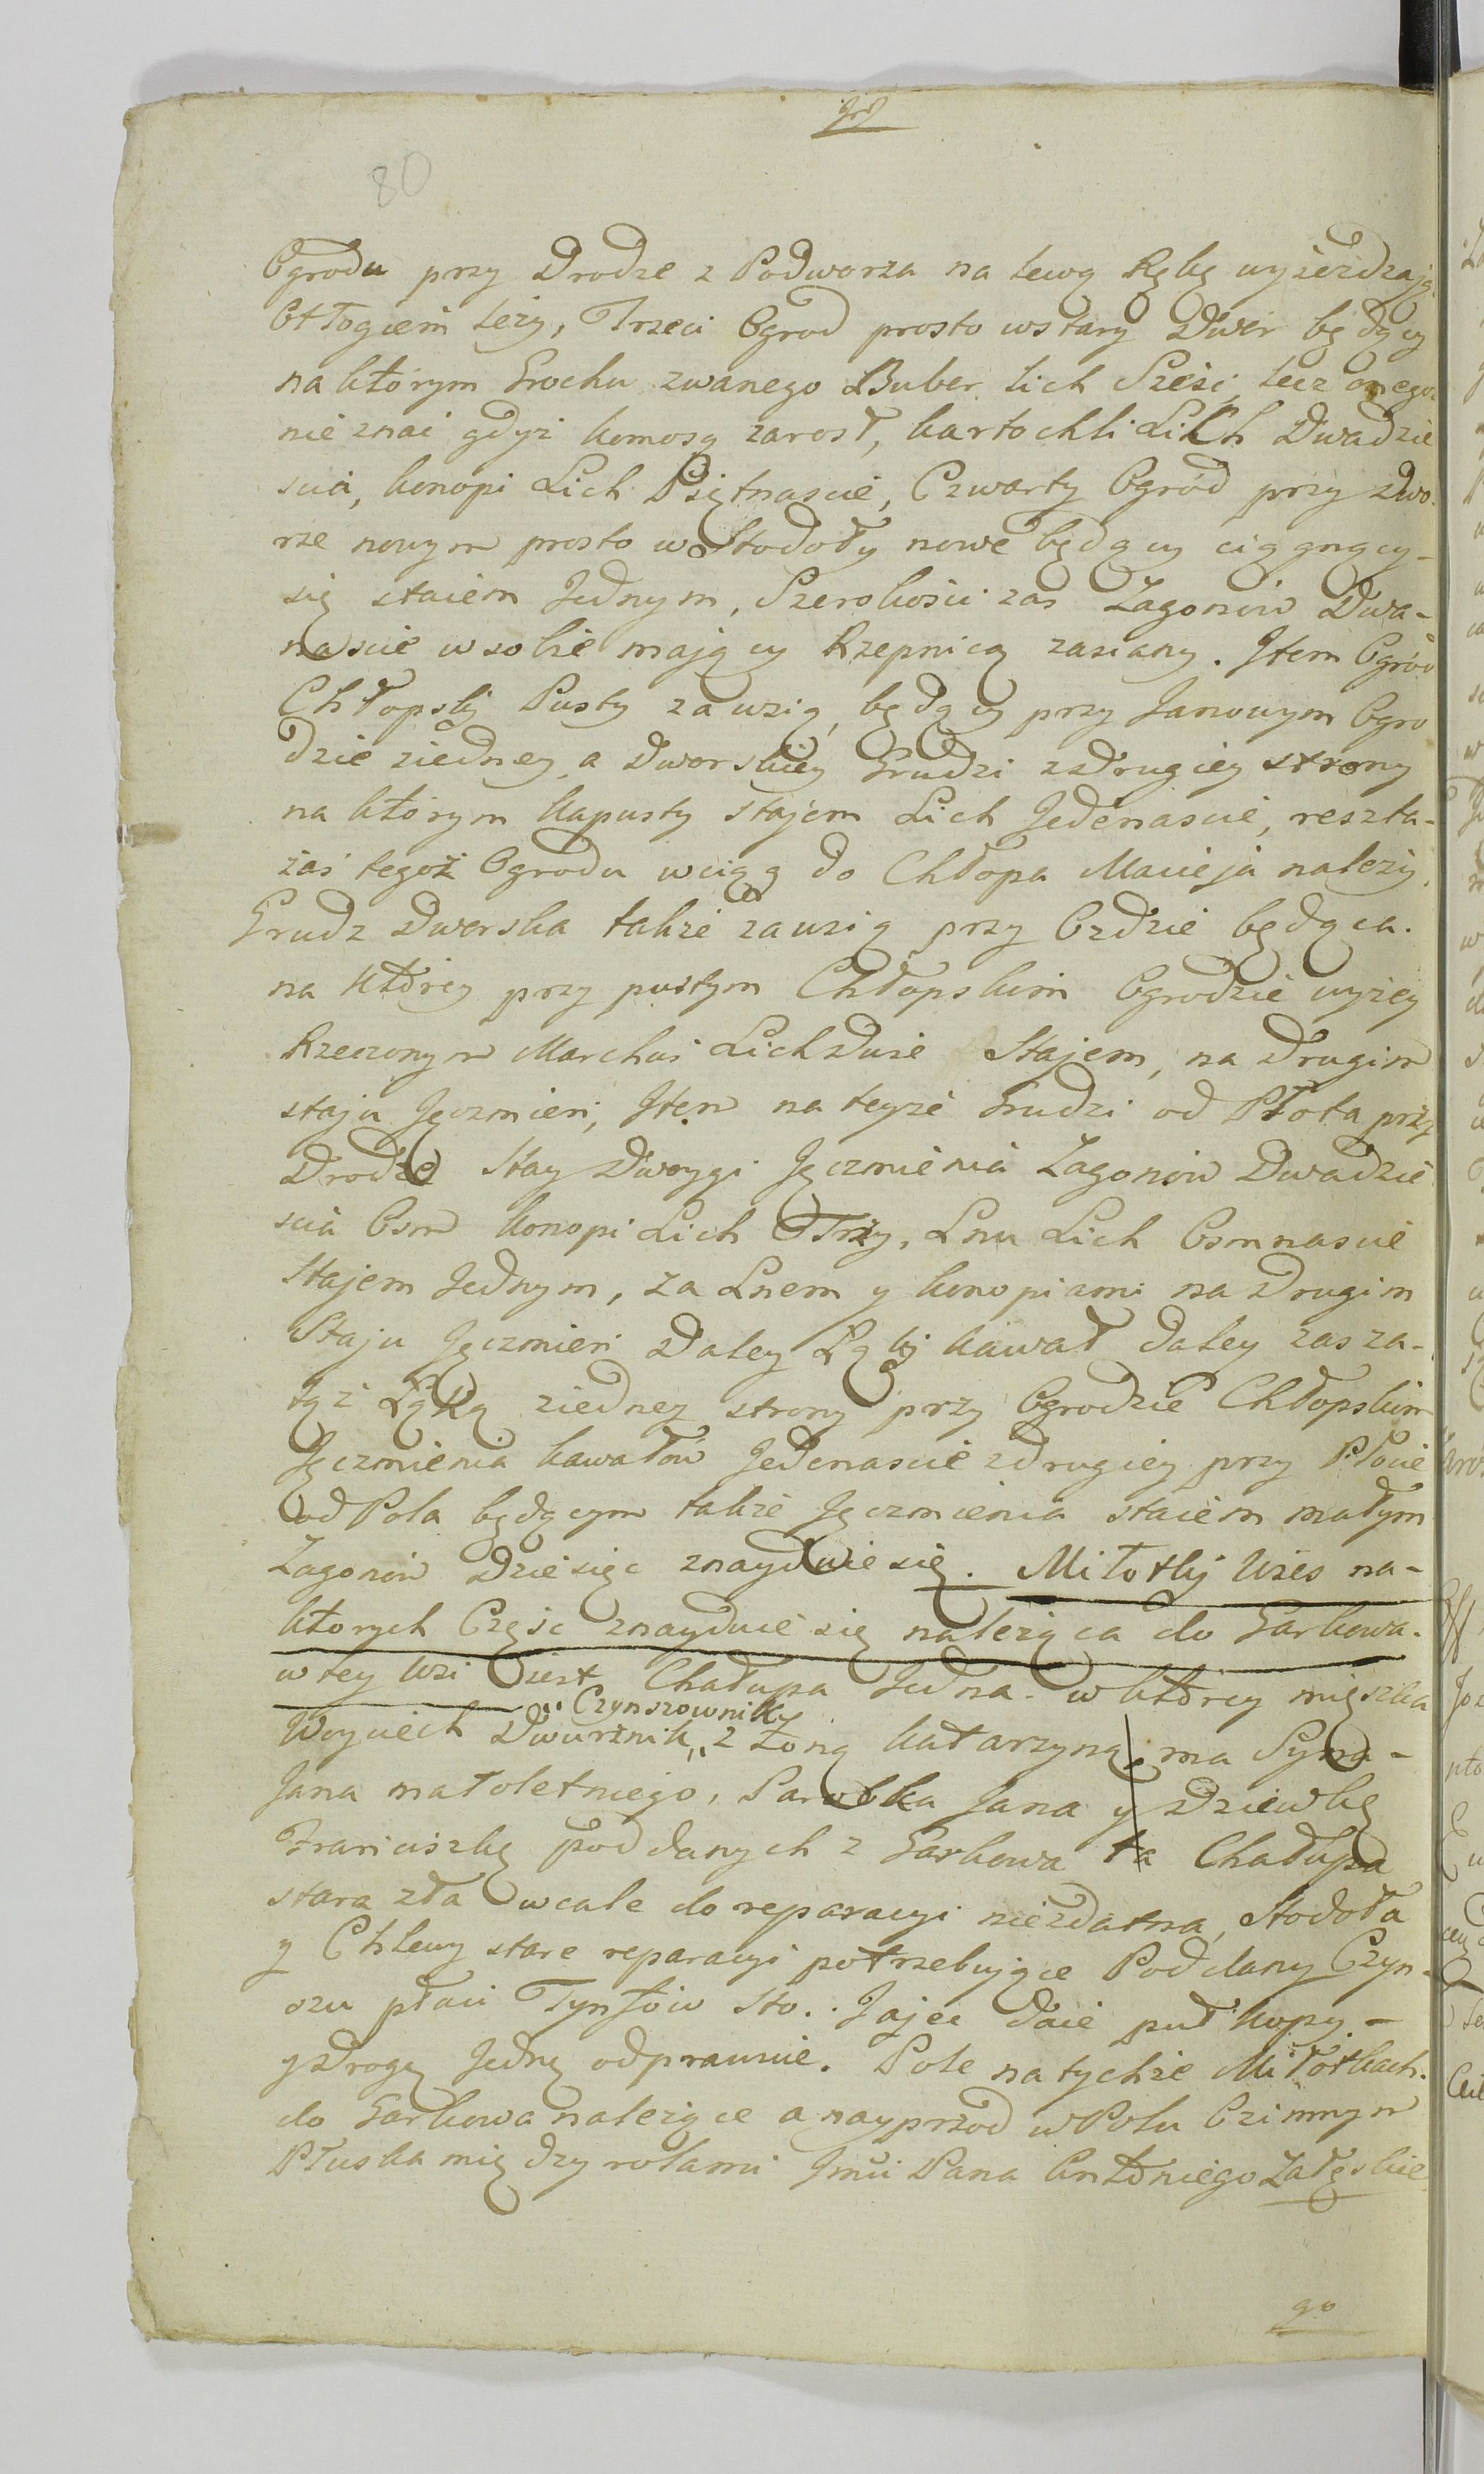 80
Ogrodu przy Drodze z Podworza na lewą Rękę wyieżdzają
Odłogiem leży, Trzeci Ogrod prosto wstary Dwor będący
na ktorym Grochu zwanego Buber Lich Sześć, lecz onegoż
nieznać gdyż komosą zarosł, kartochli Lich Dwadzie
scia, konopi Lich Piętnascie, Czwarty Ogród przy Dwo-
rze nowym prosto w Stodoły nowe będący ciągnący-
się staiem Jednym, Szerokości zas Zagonów Dwa-
nascie wsobie mający Rzepnicą zasiany. Jtem Ogród
Chłopskj Pusty zawzią, będący przy Janowym Ogro
dzie ziedney a Dworskiey Grudzi zdrugiey strony
na ktorym kapusty stajem Lich Jedenascie, reszta-
zaś tegoż Ogrodu wciąg do Chłopa Macieja należy.
Grudz Dworska także zawzią przy Ozdzie będąca.
na którey przy pustym Chłopskim Ogrodzie wyżey
Rzeczonym Marchwi Lich Dwie Stajem, na drugim
staju Jęczmień, Jtem na teyże Grudzi od Płota przy
Drodze Stay Dwoygi Jęczmienia Zagonów Dwadzie
scia Osm konopi Lich Trzy, Lnu Lich Osmnascie
Stajem Jednym, za Lnem y konopiami na Drugim
Staju Jęczmień Daley Łąkj kawał daley zas za-
tąż Łąką ziedney strony przy Ogrodzie Chłopskim
Jęczmienia kawałów Jedenascie zdrugiey przy Płocie
od Pola będącym także Jęczmienia staiem małym
Zagonów Dziesięc znayduie się. Miłotkj Wies na-
ktorych Częśc znayduie się należąca do Garkowa.
w tey Wsi iest Chałupa Jedna. w którey mięszka
" Czynszownik
Woyciech Dwurznik " z Żoną Katarzyną, ma Syna-
Jana małoletniego, Parobka Jana y Dziewkę
Franciszkę poddanych z Garkowa ta Chałupa
stara zła wcale do reparacyi niezdatna, Stodoła
y Chlewy stare reparacyi potrzebujące Poddany Czyn-
szu płaci Tynfów Sto. Jajec daie puł kopy -
y Drogę Jednę odprawuie. Pole na tychże Miłotkach.
do Garkowa należące a nayprzod w Polu Ozimnym
Płuska między rolami Jmci Pana Antoniego Załęskie
go